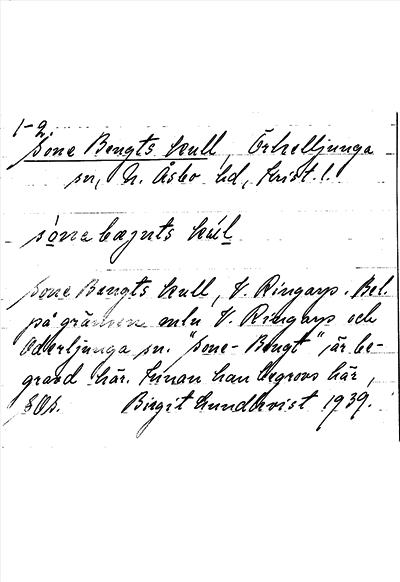 1-2
Sone Bengts kull, Örkelljunga
sn, N. Åsbo hd, Krist. l.
sónebæŋts kúl
Sone Bengts kull, V. Ringarp. Bel.
på gränsen mln V. Ringarp och
Oderljunga sn. "Sone-Bengt" är be-
gravd här. Innan han begrovs här,
Birgit Lundkvist 1939.